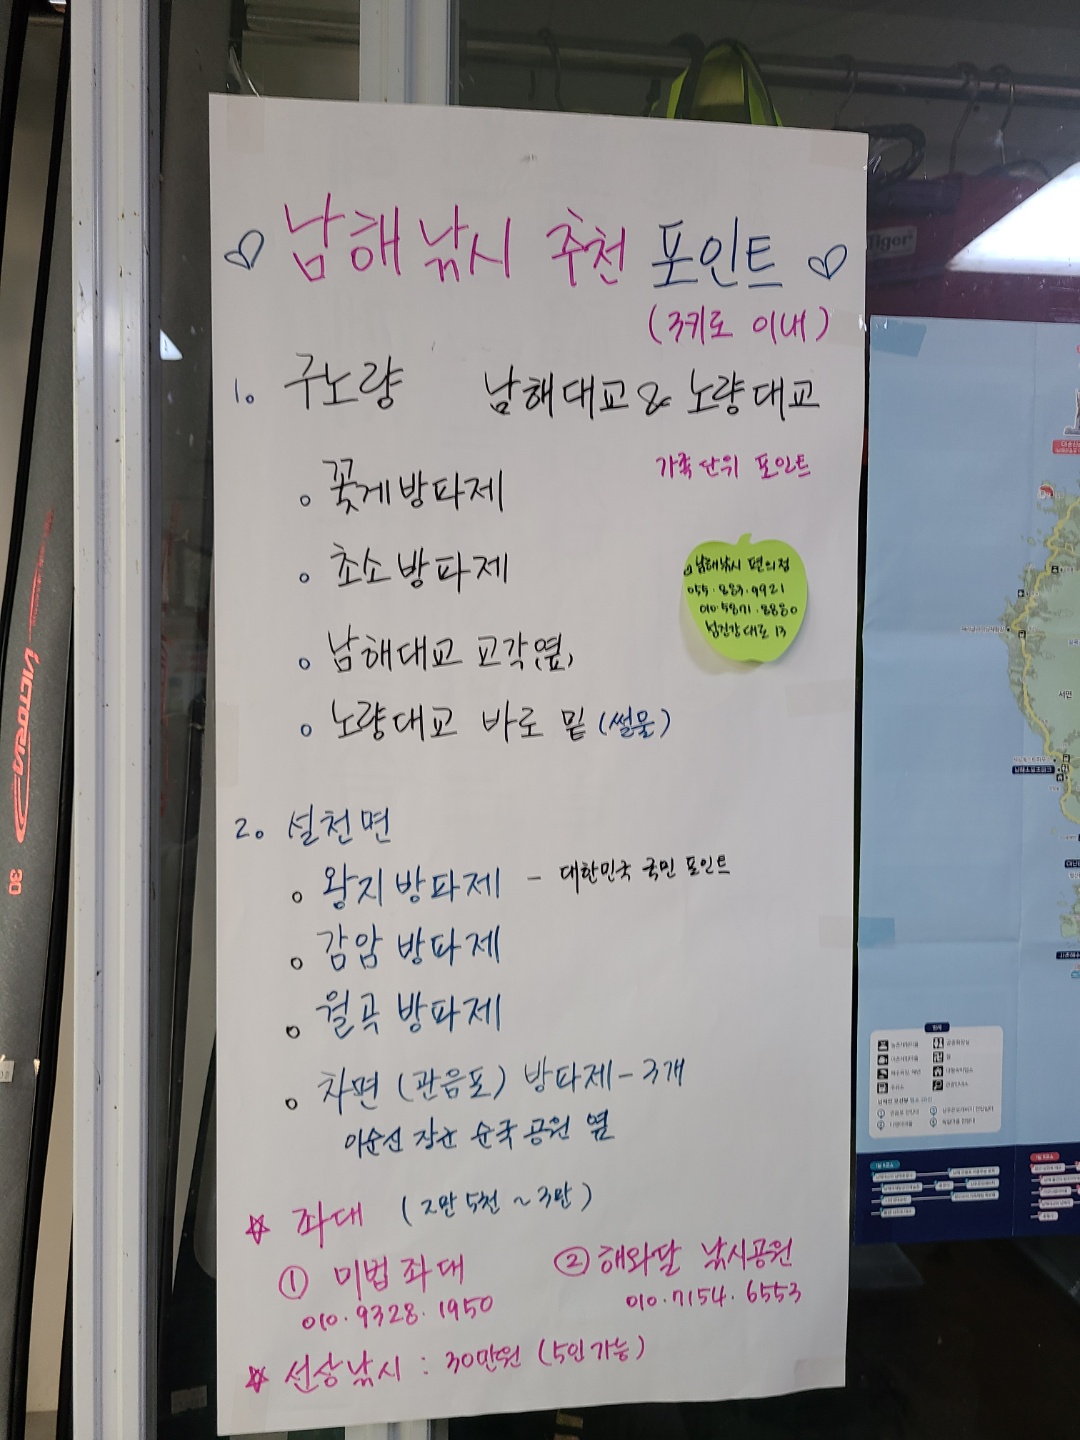 남해낚시 추천 포인트
(3키로 이내)
1. 구노량 남해대교 & 노량대교
가족단위 포인트
꽃게방파제
초소방파제
남해대교 교각옆,
노량대교 바로 밑 (썰물)
남해낚시 편의점
055.883.9921
010.5871.8880
대로 13
2. 설천면
왕지방파제 - 대한민국 국민 포인트
감암방파제
월곡방파제
차면 (관음포) 방파제-3개
이순신 장군 순국공원 옆
☆ 좌대 (2만5천~3만)
① 미법좌대
010.9328.1950
② 해와달 낚시공원
010.7154.6553
☆ 선상낚시 : 30만원 (5인가능)
Tiger
VICTORIA
30
서면